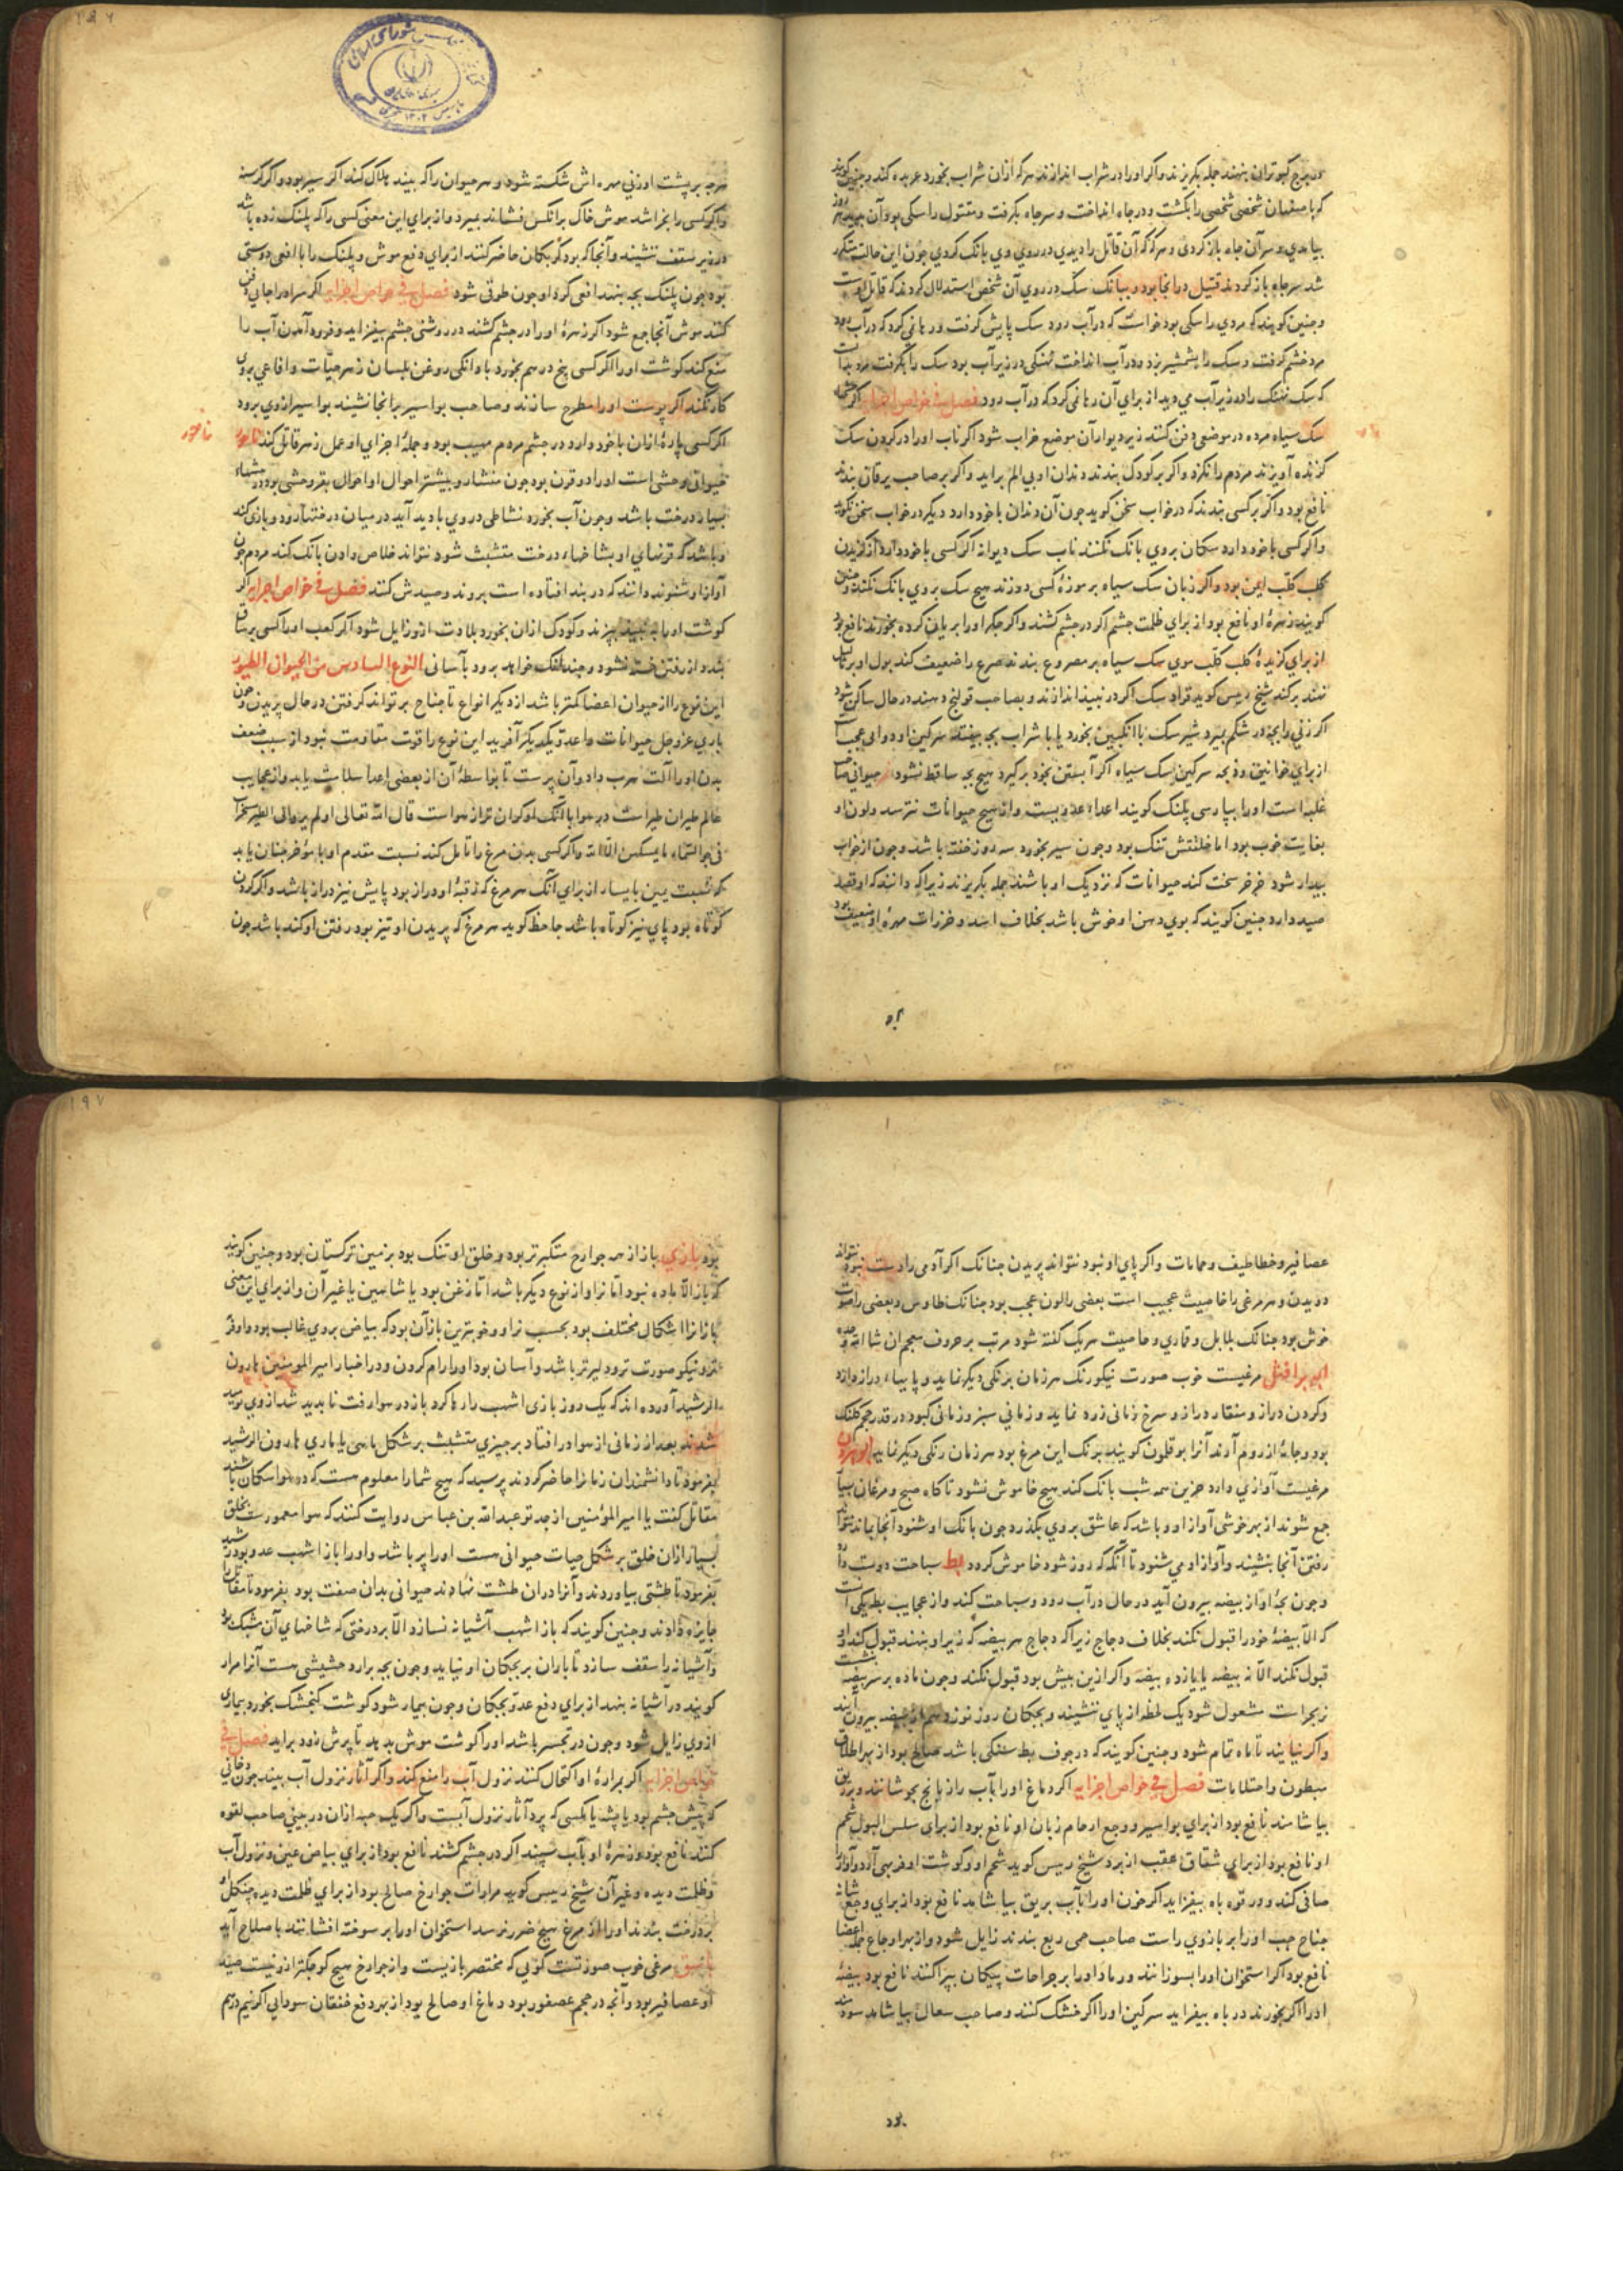 در برج کبوتران بنهند جمله بکریزند واکر اورا در شراب اندازند هرکه ازان شراب بخورد عربده کند وچنین کویند
که باصفهان شخصی شخصی را بکشت ودر چاه انداخت و سرچاه بکرفت ومقتول را سکی بود آن هر روز
بیامدی وسر آن چاه باز کردی وهرکه که آن قاتل را دیدی در روی وی بانک کردی چون این حالت متکرر
شد سرچاه باز کردند قتیل در انجا بود و ببانک سک در روی آن شخص استدلال کردند که قاتل اوست
وچنین کویند که مردی را سکی بود خواست که در آب رود سک پایش کرفت ورها نمی کرد که در آب رود
مرد خشم کرفت وسک را بشمشیر بزد ودر آب انداخت نهنکی در زیر آب بود سک را بکرفت مرد بدانست
که سک نهنک را در زیر آب می دید از برای آن رها نمی کرد که در آب رود فصل فی خواص اجزایه اکر
سک سیاه مرده در موضعی دفن کنند زیر دیوار آن موضع خراب شود اکر ناب اورا در کردن سک
کزنده آویزند مردم را نکزد واکر بر کودک بندند دندان او بی الم براید واکر بر صاحب یرقان بندند
نافع بود واکر بر کسی بندند که در خواب سخن کوید چون آن دندان باخود دارد دیکر در خواب سخن نکوید
واکر کسی باخود دارد سکان بروی بانک نکنند ناب سک دیوانه اکر کسی باخود دارد از کزیدن
کلب کلب ایمن بود واکر زبان سک سیاه بر موزهٔ کسی دوزند هیچ سک بروی بانک نکند وچنین
کویند زهرهٔ او نافع بود از برای ظلمت چشم اکر در چشم کشند واکر جکر اورا بریان کرده بخورند نافع بود
از برای کزیدهٔ کلب کلب موی سک سیاه بر مصروع بندند صرع را ضعیف کند بول او بر ثالیل
نهند برکند شیخ رییس کوید قراد سک اکر در نبیذ اندازند و بصاحب قولنج دهند در حال ساکن شود
اکر زنی را بچه در شکم بمیرد شیر سک با انکبین بخورد یا با شراب بچه بیفتد سرکین او دوائی عجب است
از برای خوانیق وذبحه سرکین سک سیاه اکر آبستن بخود برکیرد هیچ بچه ساقط نشود حیوانی صاحب
غلبه است اورا بپارسی پلنک کویند اعدا عدو یست واز هیچ حیوانات نترسد ولون او
بغایت خوب بود اما خلقتش تنک بود وچون سیر بخورد سه روز خفته باشد وچون از خواب
بیدار شود خرخر سخت کند حیوانات که نزدیک او باشند جمله بکریزند زیراکه دانند که او قصد
صید دارد چنین کویند که بوی دهن او خوش باشد بخلاف اسد وخرزات مهرهٔ او ضعیف بود
هرچه بر پشت او زنی مهره اش شکسته شود وهر حیوان را که بیند هلاک کند اکر سیر بود واکر کرسنه
واکر کسی را بخراشد موش خاک برانکس فشاند بمیرد واز برای این معنی کسی را که پلنک زده باشد
در زیر سقف ننشیند وآنجا که بود کربکان حاضر کنند از برای دفع موش وپلنک را با افعی دوستی
بود چون پلنک بچه بنهد افعی کرد او چون طوقی شود فصل فی خواص اجزایه اکر سر اورا جای دفن
کنند موش آنجا جمع شود اکر زهرهٔ اورا در چشم کشند در روشنی چشم بیفزاید وفرود آمدن آب را
منع کند کوشت اورا اکر کسی پنج درهم بخورد با دانکی روغن بلسان زهر حیات وافاعی بروی
کار نکند اکر پوست اورا مطرح سازند وصاحب بواسیر برانجا نشیند بواسیر از وی برود
اکر کسی پارهٔ ازان باخود دارد در چشم مردم مهیب بود وجملهٔ اجزای او عمل زهر قاتل کند تامور
تامور
حیوانی وحشی است اورا دو قرن بود چون منشار وبیشتر احوال او احوال بقر وحشی بود در مشهاء
بسیار درخت باشد وچون آب بخورد نشاطی در وی بادید آید در میان درختها رود وبازی کند
وباشد که قرنهای او بشاخهاء درخت متشبث شود نتواند خلاص دادن بانک کند مردم چون
آواز او شنوند دانند که در بند افتاده است بروند وصیدش کنند فصل فی خواص اجزایه اکر
کوشت اورا به نبیذ بپزند وکودک ازان بخورد بلادت ازو زایل شود اکر کعب اورا کسی برساق
بندد از رفتن خسته نشود وچندانک خواهد برود بآسانی النوع السادس من الحیوان الطیور
این نوع را از حیوان اعضا کمتر باشد از دیکر انواع تا جناح بر تواند کرفتن در حال پریدن وچون
باری عز وجل حیوانات را عدو یکدیکر آفرید این نوع را قوت مقاومت نبود از سبب ضعف
بدن اورا آلت هرب داد وآن پرست تا بواسطهٔ آن از بعضی اعدا سلامت یابد واز عجایب
عالم طیران طیر است در هوا با آنک او کران تر از هواست قال الله تعالی اولم یروا الی الطیر مسخرات
فی جو السماء ما یمسکهن الا الله واکر کسی بدن مرغ را تامل کند نسبت مقدم او با مؤخر چنان یابد
که نسبت یمین با یسار از برای آنک هر مرغ که رقبهٔ او دراز بود پایش نیز دراز باشد واکر کردن
کوتاه بود پای نیز کوتاه باشد جاحظ کوید هر مرغ که پریدن او تیز بود رفتن او کند باشد چون
عصافیر وخطاطیف وحمامات واکر پای او نبود نتواند پریدن چنانک اکر آدمی را دست نبود نتواند
دویدن وهر مرغی را خاصیت عجیب است بعضی را لون عجب بود چنانک طاوس وبعضی را صوت
خوش بود چنانک بلابل وقماری وخاصیت هریک کفته شود مرتب بر حروف معجم ان شا الله وحده
ابو براقش مرغیست خوب صورت نیکو رنک هر زمان برنکی دیکر نماید وپایهاء دراز دارد
وکردن دراز ومنقار دراز وسرخ زمانی زرد نماید وزمانی سبز وزمانی کبود در قدر حجم کلنک
بود وجامهٔ از روم آرند آنرا بوقلون کویند برنک این مرغ بود هر زمان رنکی دیکر نماید ابو هرون
مرغیست آوازی دارد حزین همه شب بانک کند هیچ خاموش نشود تا کاه صبح ومرغان بسیار
جمع شوند از بهر خوشی آواز او وباشد که عاشق بروی بکذرد چون بانک او شنود آنجا بماند نتواند
رفتن آنجا بنشیند وآواز او می شنود تا آنکه که روز شود خاموش کردد بط سباحت دوست دارد
وچون بچهٔ او از بیضه بیرون آید در حال در آب رود وسباحت کند واز عجایب بط یکی آنست
که الا بیضهٔ خود را قبول نکند بخلاف دجاج زیراکه دجاج هر بیضه که زیر او بنهند قبول کند واو
قبول نکند الا نه بیضه یا یازده بیضه واکر ازین بیش بود قبول نکند وچون ماده بر سر بیضه بنشست
نر بحراست مشغول شود یک لحظه از پای ننشیند وبچکان روز نوزدهم از بیضه بیرون آیند
واکر نیایند تا ماه تمام شود وچنین کویند که در جوف بط سنکی باشد صالح بود از بهر اطلاق
مبطون واحتلامات فصل فی خواص اجزایه اکر دماغ اورا بآب رازیانج بجوشانند وبر ریق
بیاشامند نافع بود از برای بواسیر ووجع ارحام زبان او نافع بود از برای سلس البول شحم
او نافع بود از برای شقاق عقب از برد شیخ رییس کوید شحم او وکوشت او فربهی آرد وآواز را
صافی کند ودر قوه باه بیفزاید اکر خون اورا بآب بریق بیاشامند نافع بود از برای وجع مثانه
جناح چپ اورا بر بازوی راست صاحب حمی ربع بندند زایل شود واز بهر اوجاع جملهٔ اعضا
نافع بود اکر استخوان اورا بسوزانند ورماد اورا بر جراحات پیکان پراکنند نافع بود بیضهٔ
اورا اکر بخورند در باه بیفزاید سرکین اورا اکر خشک کنند وصاحب سعال بیاشامد سودمند
بود بازی باز از همه جوارح متکبرتر بود وخلق او تنک بود بزمین ترکستان بود وچنین کویند
که باز الا ماده نبود اما نر او از نوع دیکر باشد اما زغن بود یا شاهین یا غیر آن واز برای این معنی
بازانرا اشکال مختلف بود بحسب نر او وخوبترین باز آن بود که بیاض بروی غالب بود واوفر
تر ونیکو صورت تر ودلیرتر باشد وآسان بود اورا رام کردن ودر اخبار امیر المومنین هارون
الرشید آورده اند که یک روز بازی اشهب را رها کرد باز در هوا رفت ناپدید شد از وی نومید
شدند بعد از زمانی از هوا در افتاد بر چیزی متشبث بر شکل ماهی یا ماری هارون الرشید
بفرمود تا دانشمندان زمانرا حاضر کردند پرسید که هیچ شمارا معلوم هست که در هوا سکان باشند
مقاتل کفت یا امیر المؤمنین از جد تو عبد الله بن عباس روایت کنند که هوا معمورست بخلق
بسیار ازان خلق بر شکل حیات حیوانی هست اورا پر باشد واورا باز اشهب عدو بود رشید
بفرمود تا طشتی بیاوردند وآنرا دران طشت نهادند حیوانی بدان صفت بود بفرمود تا مقاتل را
جایزه دادند وچنین کویند که باز اشهب آشیانه نسازد الا بر درختی که شاخهای آن مشبک بود
وآشیانه را سقف سازد تا باران بر بچکان او نیاید وچون بچه برارد حشیشی هست آنرا مرار
کویند در آشیانه بنهد از برای دفع عدو بچکان وچون بیمار شود کوشت کنجشک بخورد بیماری
از وی زایل شود وچون در تحسر باشد اورا کوشت موش بدهد تا پرش زود براید فصل فی
خواص اجزایه اکر بمرارهٔ او اکتحال کنند نزول آب را منع کند واکر آثار نزول آب بیند چون دخانی
که پیش چشم بود یا پشه یا مکسی که پرد آثار نزول آبست واکر یک حبه ازان در بینی صاحب لقوه
کنند نافع بود وزهرهٔ او بآب سپند اکر در چشم کشند نافع بود از برای بیاض عین ونزول آب
وظلمت دیده وغیر آن شیخ رییس کوید مرارات جوارح صالح بود از برای ظلمت دیده چنکل او
بر درخت بندند اورا از مرغ هیچ ضرر نرسد استخوان اورا بر سوخته افشانند باصلاح آید
باشق مرغی خوب صورتست کوئی که مختصر بازیست واز جوارح هیچ کوچکتر ازو نیست صید
او عصافیر بود وآنچه در حجم عصفور بود دماغ او صالح بود از بهر دفع خفقان سودایی اکر نیم درم